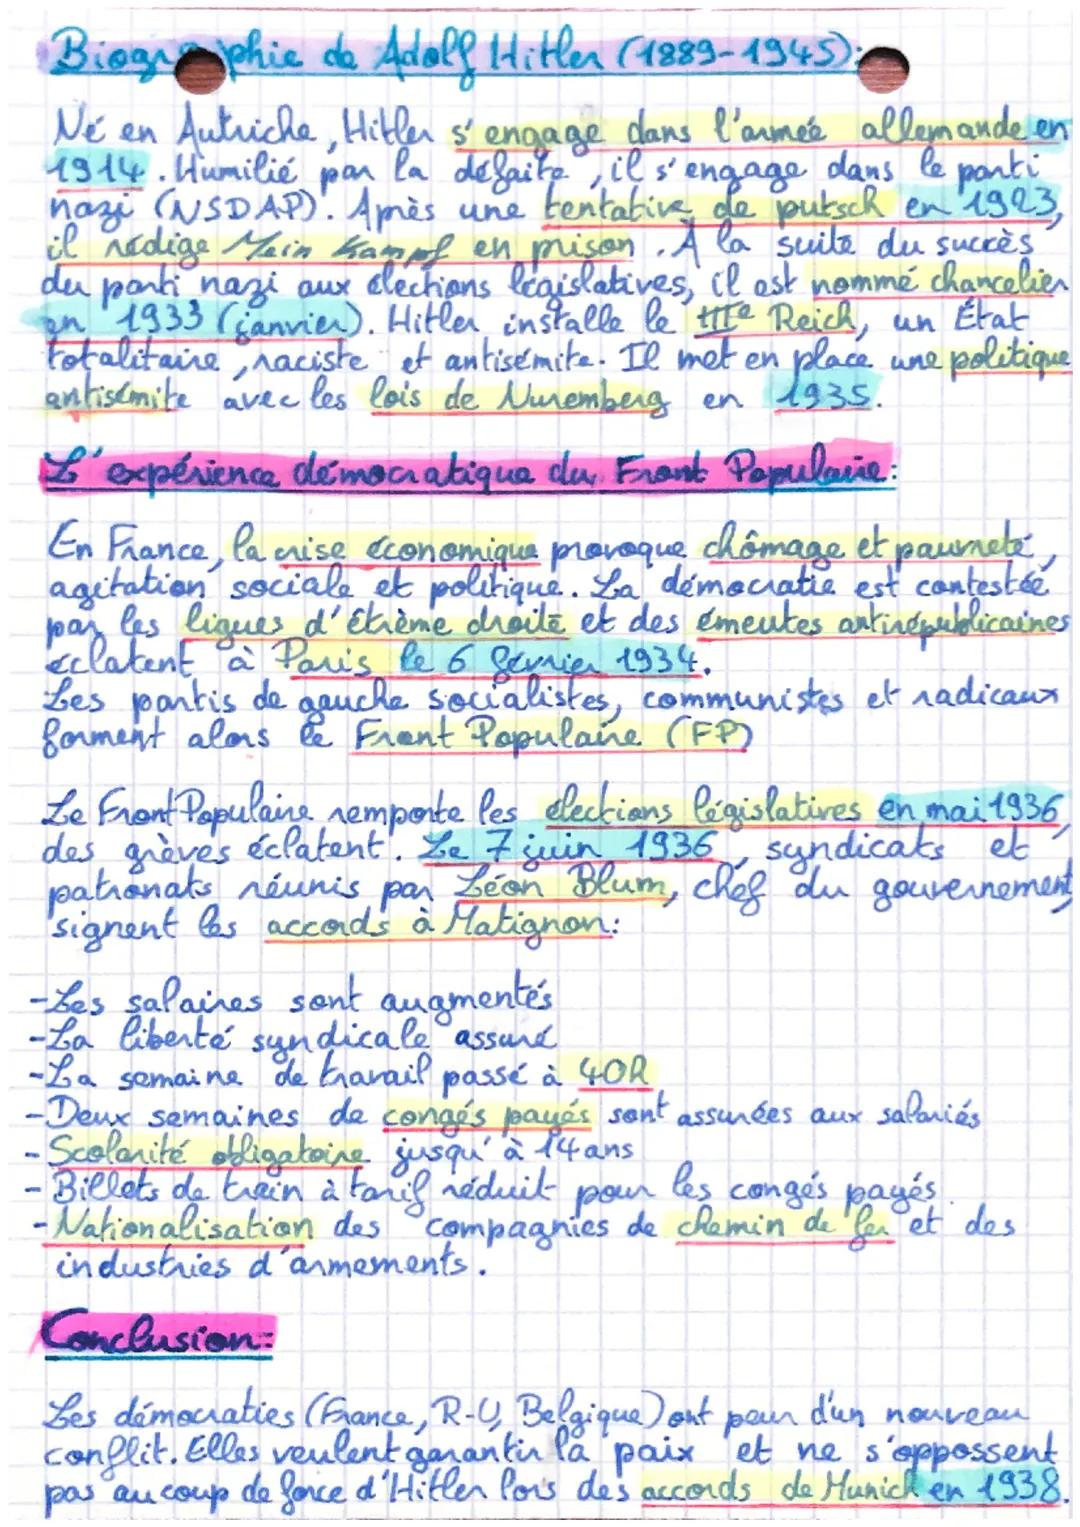 Biographie de Adolf Hitler (1889-1945):
Né en Autriche, Hitler s'engage dans l'armée allemande en
1914. Humilié par la défaite, il s'engage dans le parti
nazi (NSDAP). Après une tentative de putsch en 1923,
il rédige Mein Kampf en prison. À la suite du succès
du parti nazi aux élections législatives, il est nommé chancelier
en 1933 (janvier). Hitler installe le IIIe Reich, un État
totalitaire, raciste et antisémite. Il met en place une politique
antisémite avec les lois de Nuremberg en 1935.
L'expérience démocratique du Front Populaire:
En France, la crise économique provoque chômage et pauvreté,
agitation sociale et politique. La démocratie est contestée
par les ligues d'éxtrème droite et des émeutes antirépublicaines
éclatent à Paris le 6 février 1934.
Les partis de gauche socialistes, communistes et radicaux
forment alors le Front Populaire (FP)
Le Front Populaire remporte les élections législatives en mai 1936,
des grèves éclatent. Le 7 juin 1936, syndicats et
patronats réunis par Léon Blum, chef du gouvernement,
signent les accords à Matignon:
-Les salaires sont augmentés
-La liberté syndicale assuré
-La semaine de travail passé à 40h
-Deux semaines de congés payés sont assurées aux salariés
-Scolarité obligatoire jusqu'à 14 ans
-Billets de train à tarif réduit pour les congés payés.
-Nationalisation des compagnies de chemin de fer et des
industries d'armements.
Conclusion:
Les démocraties (France, R-U, Belgique) ont peur d'un nouveau
conflit. Elles veulent garantir la paix et ne s'oppossent
pas au coup de force d'Hitler lors des accords de Munich en 1938.